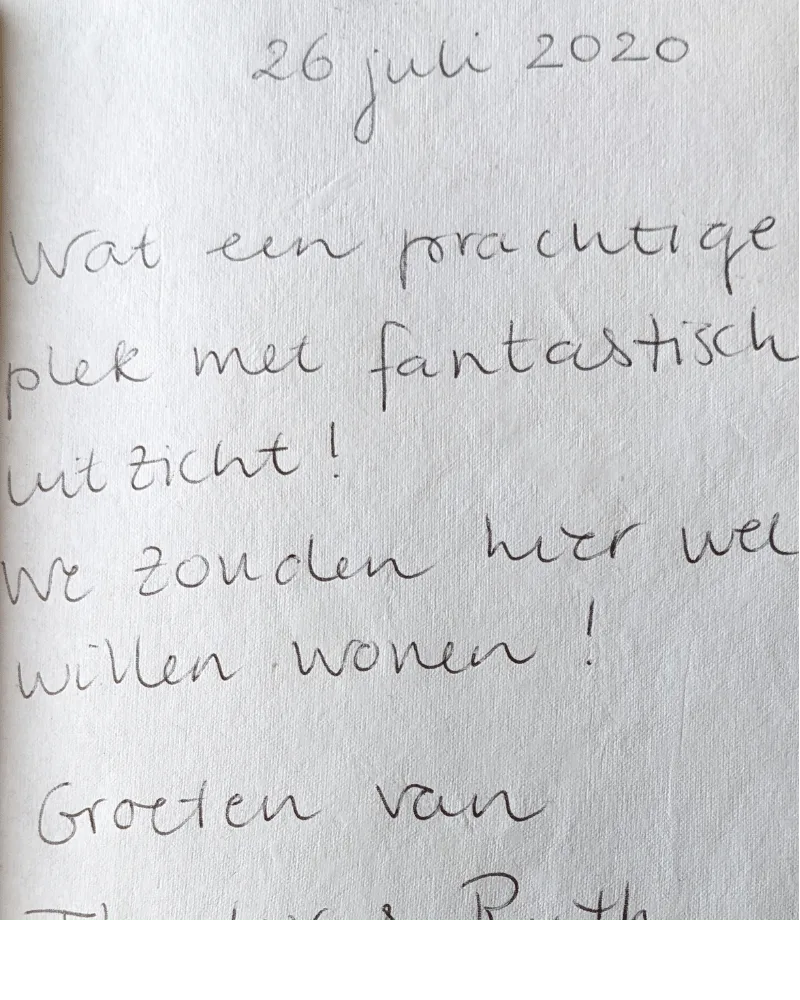 26 juli 2020
Wat een prachtige
plek met fantastisch
uitzicht!
We zouden hier wel
willen wonen!
Groeten van
Ruth